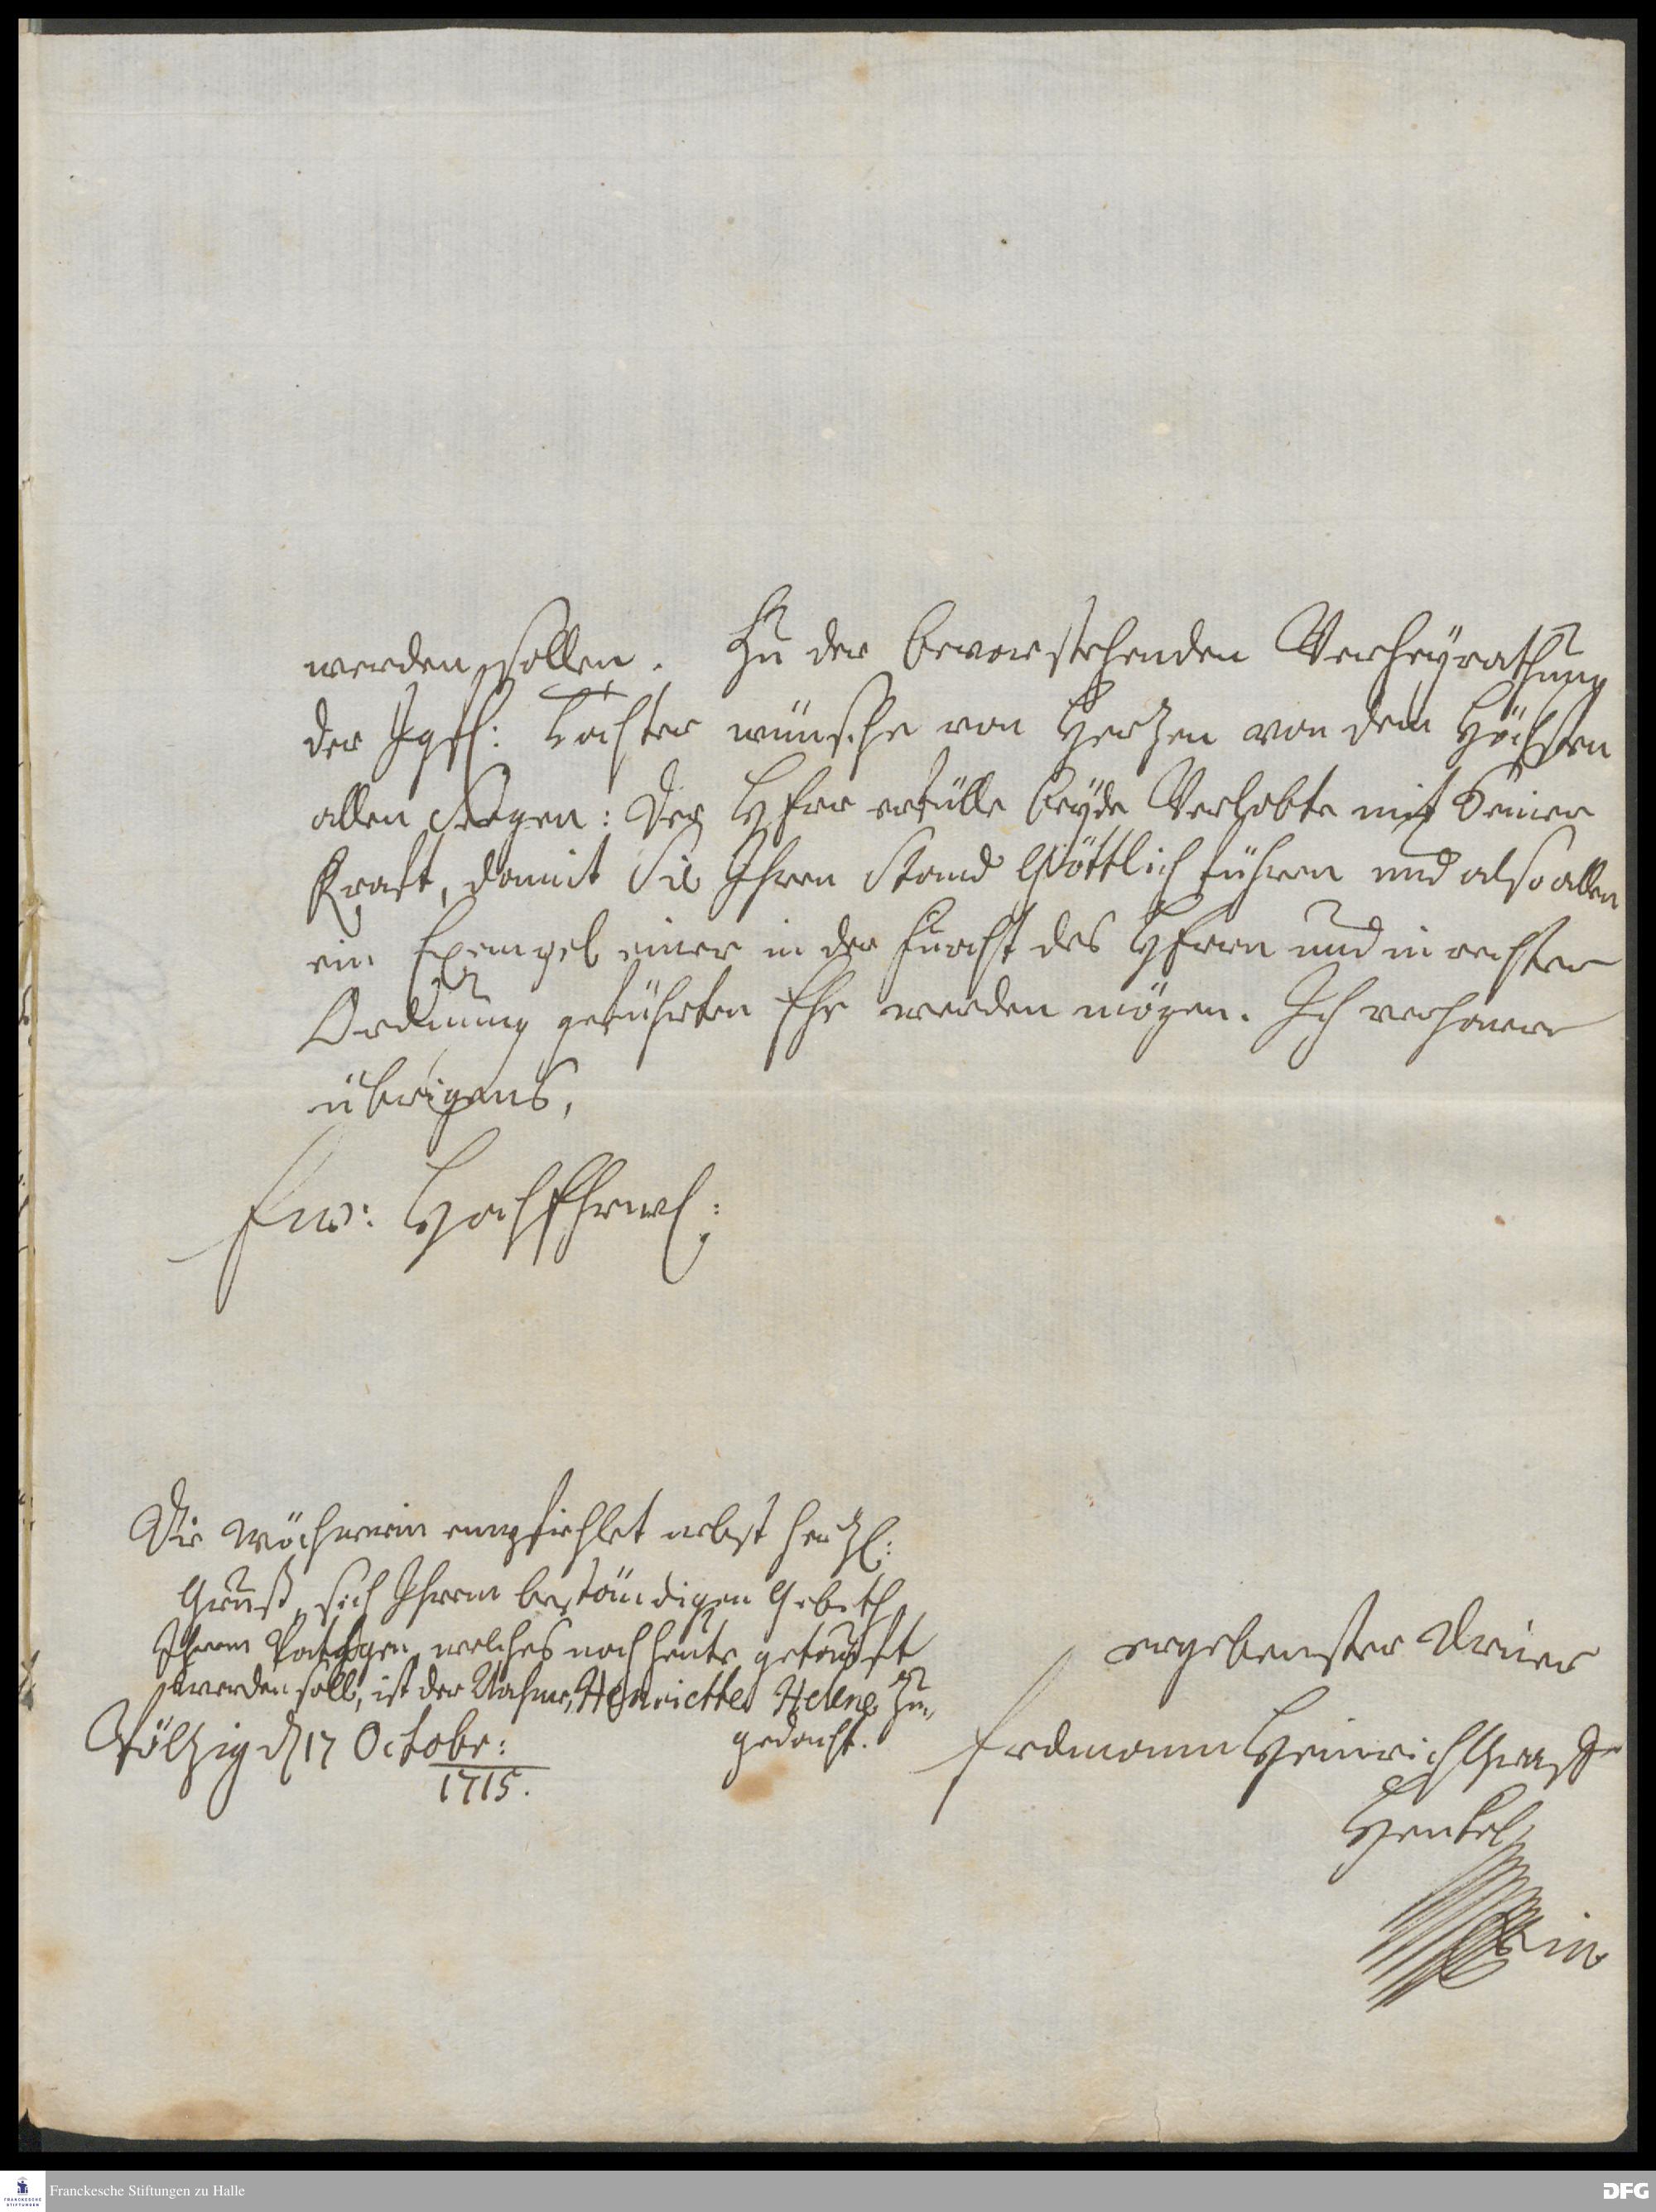 werden sollen. Zu der bevorstehenden Verheyrathung
der Jgfl: Tochter wünsche von Hertzen von dem Höchsten
allen Seegen: Der HErr erfülle beyde Verlobte mit Seiner
Krafft, damit Sie Ihren Stand Göttlich führen und also allen
ein Exempel einer in der Furcht des HErrn und in rechter
Ordnung geführten Ehe werden mögen. Ich verharre
übrigens,
Ew: HochEhrw:
Die Wöchnerin empfiehlet nebst hertzl:
Gruß, sich Ihrem beständigen Gebeth
Ihrem Pathgen, welches noch heute getaufft
werden soll, ist der Nahme, Henriette Helene zu-
gedacht.
Pöltzig d 17 Octobr:
1715.
ergebenster Diener
Erdmann Heinrich Graff
Henkel
Franckesche Stiftungen zu Halle
DFG